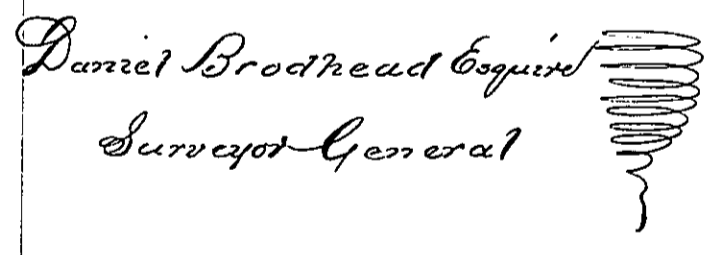 Daniel Brodhead Esquire
Surveyor General